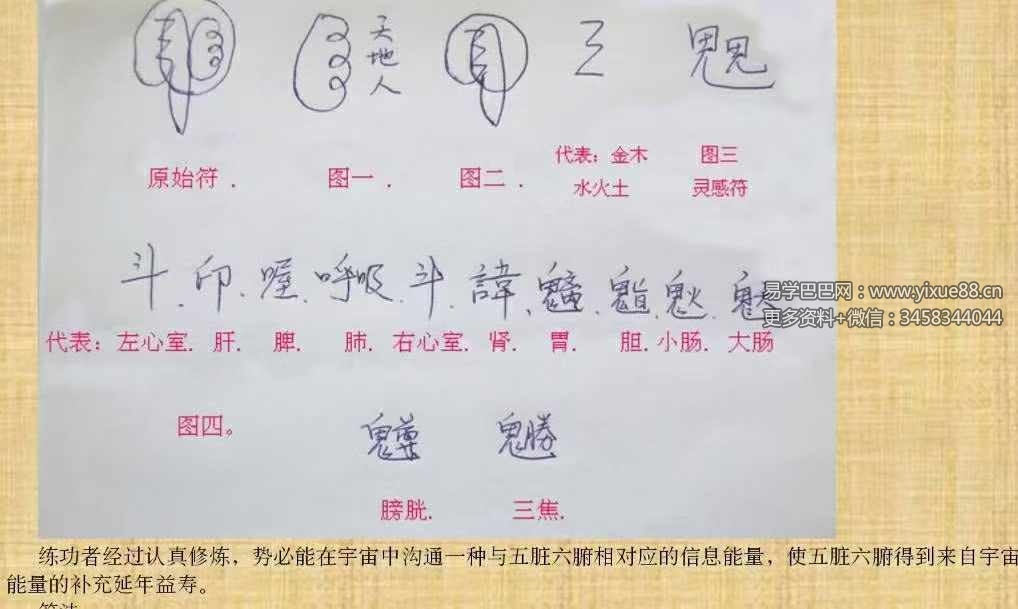 天
地
人
三
代表：金木 图三
原始符． 图一． 图二． 水火土 灵感符
斗．印．喔．呼吸．斗．諱．
易学巴巴网：www.yixue88.cn
更多资料+微信：3458344044
代表：左心室．肝．脾．肺．右心室．肾．胃．胆．小肠．大肠
图四。
膀胱． 三焦．
练功者经过认真修炼，势必能在宇宙中沟通一种与五脏六腑相对应的信息能量，使五脏六腑得到来自宇宙
能量的补充延年益寿。